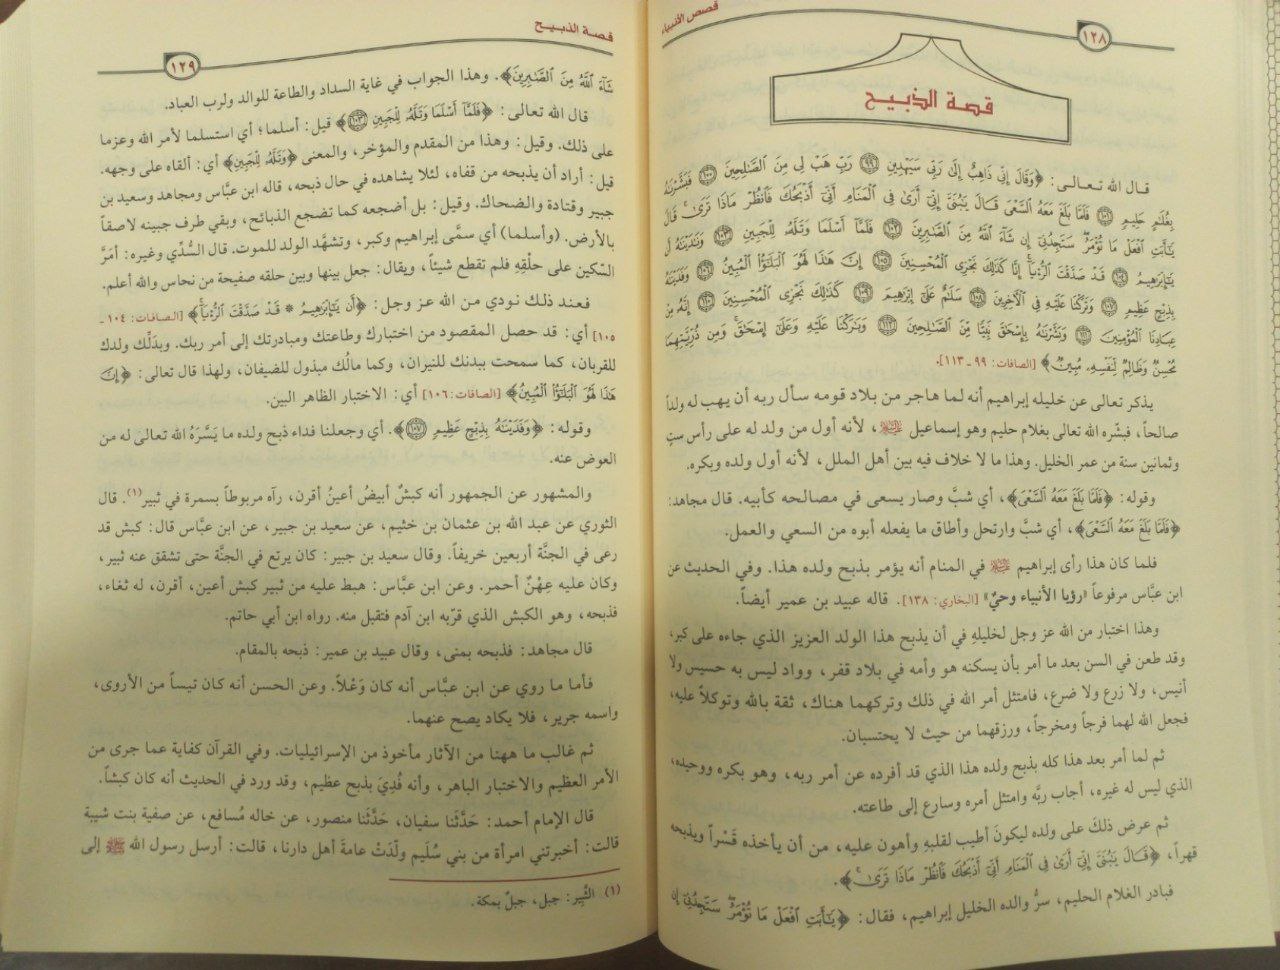 قصص الأنبياء
١٢٨
قصة الذبيح
قال الله تعالى: ﴿وَقَالَ إِنِّي ذَاهِبٌ إِلَىٰ رَبِّي سَيَهْدِينِ ﴿٩٩﴾ رَبِّ هَبْ لِي مِنَ الصَّالِحِينَ ﴿١٠٠﴾ فَبَشَّرْنَاهُ
بِغُلَامٍ حَلِيمٍ ﴿١٠١﴾ فَلَمَّا بَلَغَ مَعَهُ السَّعْيَ قَالَ يَا بُنَيَّ إِنِّي أَرَىٰ فِي الْمَنَامِ أَنِّي أَذْبَحُكَ فَانْظُرْ مَاذَا تَرَىٰ قَالَ
يَا أَبَتِ افْعَلْ مَا تُؤْمَرُ سَتَجِدُنِي إِنْ شَاءَ اللَّهُ مِنَ الصَّابِرِينَ ﴿١٠٢﴾ فَلَمَّا أَسْلَمَا وَتَلَّهُ لِلْجَبِينِ ﴿١٠٣﴾ وَنَادَيْنَاهُ أَنْ
يَا إِبْرَاهِيمُ ﴿١٠٤﴾ قَدْ صَدَّقْتَ الرُّؤْيَا إِنَّا كَذَٰلِكَ نَجْزِي الْمُحْسِنِينَ ﴿١٠٥﴾ إِنَّ هَٰذَا لَهُوَ الْبَلَاءُ الْمُبِينُ ﴿١٠٦﴾ وَفَدَيْنَاهُ
بِذِبْحٍ عَظِيمٍ ﴿١٠٧﴾ وَتَرَكْنَا عَلَيْهِ فِي الْآخِرِينَ ﴿١٠٨﴾ سَلَامٌ عَلَىٰ إِبْرَاهِيمَ ﴿١٠٩﴾ كَذَٰلِكَ نَجْزِي الْمُحْسِنِينَ ﴿١١٠﴾ إِنَّهُ مِنْ
عِبَادِنَا الْمُؤْمِنِينَ ﴿١١١﴾ وَبَشَّرْنَاهُ بِإِسْحَاقَ نَبِيًّا مِنَ الصَّالِحِينَ ﴿١١٢﴾ وَبَارَكْنَا عَلَيْهِ وَعَلَىٰ إِسْحَاقَ وَمِنْ ذُرِّيَّتِهِمَا
مُحْسِنٌ وَظَالِمٌ لِنَفْسِهِ مُبِينٌ﴾ [الصافات: ٩٩ ـ ١١٣].
يذكر تعالى عن خليله إبراهيم أنه لما هاجر من بلاد قومه سأل ربه أن يهب له ولداً
صالحاً، فبشّره الله تعالى بغلام حليم وهو إسماعيل عليه السلام، لأنه أول من ولد له على رأس ستٍ
وثمانين سنة من عمر الخليل. وهذا ما لا خلاف فيه بين أهل الملل، لأنه أول ولده وبكره.
وقوله: ﴿فَلَمَّا بَلَغَ مَعَهُ السَّعْيَ﴾، أي شبَّ وصار يسعى في مصالحه كأبيه. قال مجاهد:
﴿فَلَمَّا بَلَغَ مَعَهُ السَّعْيَ﴾، أي شبَّ وارتحل وأطاق ما يفعله أبوه من السعي والعمل.
فلما كان هذا رأى إبراهيم عليه السلام في المنام أنه يؤمر بذبح ولده هذا. وفي الحديث عن
ابن عبَّاس مرفوعاً «رؤيا الأنبياء وحيٌ» [البخاري: ١٣٨]. قاله عبيد بن عمير أيضاً.
وهذا اختبار من الله عز وجل لخليلهِ في أن يذبح هذا الولد العزيز الذي جاءه على كبر،
وقد طعن في السن بعد ما أمر بأن يسكنه هو وأمه في بلاد قفر، وواد ليس به حسيس ولا
أنيس، ولا زرع ولا ضرع، فامتثل أمر الله في ذلك وتركهما هناك، ثقة بالله وتوكلاً عليه،
فجعل الله لهما فرجاً ومخرجاً، ورزقهما من حيث لا يحتسبان.
ثم لما أمر بعد هذا كله بذبح ولده هذا الذي قد أفرده عن أمر ربه، وهو بكره ووحيده،
الذي ليس له غيره، أجاب ربَّه وامتثل أمره وسارع إلى طاعته.
ثم عرض ذلكَ على ولده ليكونَ أطيب لقلبهِ وأهون عليه، من أن يأخذه قَسْراً ويذبحه
قهراً، ﴿قَالَ يَا بُنَيَّ إِنِّي أَرَىٰ فِي الْمَنَامِ أَنِّي أَذْبَحُكَ فَانْظُرْ مَاذَا تَرَىٰ﴾.
فبادر الغلام الحليم، سرُّ والده الخليل إبراهيم، فقال: ﴿يَا أَبَتِ افْعَلْ مَا تُؤْمَرُ سَتَجِدُنِي إِنْ
قصة الذبيح
١٢٩
شَاءَ اللَّهُ مِنَ الصَّابِرِينَ﴾. وهذا الجواب في غاية السداد والطاعة للوالد ولرب العباد.
قال الله تعالى: ﴿فَلَمَّا أَسْلَمَا وَتَلَّهُ لِلْجَبِينِ ﴿١٠٣﴾﴾ قيل: أسلما؛ أي استسلما لأمر الله وعزما
على ذلك. وقيل: وهذا من المقدم والمؤخر، والمعنى ﴿وَتَلَّهُ لِلْجَبِينِ﴾ أي: ألقاه على وجهه.
قيل: أراد أن يذبحه من قفاه، لئلا يشاهده في حال ذبحه، قاله ابن عبَّاس ومجاهد وسعيد بن
جبير وقتادة والضحاك. وقيل: بل أضجعه كما تضجع الذبائح، وبقي طرف جبينه لاصقاً
بالأرض. (وأسلما) أي سمَّى إبراهيم وكبر، وتشهَّد الولد للموت. قال السُّدِّي وغيره: أمَرَّ
السّكين على حلْقِهِ فلم تقطع شيئاً، ويقال: جعل بينها وبين حلقه صفيحة من نحاس والله أعلم.
فعند ذلك نودي من الله عز وجل: ﴿أَنْ يَا إِبْرَاهِيمُ * قَدْ صَدَّقْتَ الرُّؤْيَا﴾ [الصافات: ١٠٤ ـ
١٠٥] أي: قد حصل المقصود من اختبارك وطاعتك ومبادرتك إلى أمر ربك. وبذلِّك ولدك
للقربان، كما سمحت ببدنك للنيران، وكما مالُك مبذول للضيفان، ولهذا قال تعالى: ﴿إِنَّ
هَٰذَا لَهُوَ الْبَلَاءُ الْمُبِينُ﴾ [الصافات: ١٠٦] أي: الاختبار الظاهر البين.
وقوله: ﴿وَفَدَيْنَاهُ بِذِبْحٍ عَظِيمٍ ﴿١٠٧﴾﴾. أي وجعلنا فداء ذبح ولده ما يَسَّرَهُ الله تعالى له من
العوض عنه.
والمشهور عن الجمهور أنه كبشٌ أبيضُ أعينُ أقرن، رآه مربوطاً بسمرة في ثبير(١). قال
الثوري عن عبد الله بن عثمان بن خثيم، عن سعيد بن جبير، عن ابن عبَّاس قال: كبش قد
رعى في الجنَّة أربعين خريفاً. وقال سعيد بن جبير: كان يرتع في الجنَّة حتى تشقق عنه ثبير،
وكان عليه عِهْنٌ أحمر. وعن ابن عبَّاس: هبط عليه من ثبير كبش أعين، أقرن، له ثغاء،
فذبحه، وهو الكبش الذي قرّبه ابن آدم فتقبل منه. رواه ابن أبي حاتم.
قال مجاهد: فذبحه بمنى، وقال عبيد بن عمير: ذبحه بالمقام.
فأما ما روي عن ابن عبَّاس أنه كان وَعْلاً. وعن الحسن أنه كان تيساً من الأروى،
واسمه جرير، فلا يكاد يصح عنهما.
ثم غالب ما ههنا من الآثار مأخوذ من الإسرائيليات. وفي القرآن كفاية عما جرى من
الأمر العظيم والاختبار الباهر، وأنه فُدِيَ بذبح عظيم، وقد ورد في الحديث أنه كان كبشاً.
قال الإمام أحمد: حَدَّثَنا سفيان، حَدَّثَنا منصور، عن خاله مُسافع، عن صفية بنت شيبة
قالت: أخبرتني امرأة من بني سُلَيم ولَّدَتْ عامةَ أهل دارنا، قالت: أرسل رسول الله ﷺ إلى
(١) الثَّبِير: جبل، جبلٌ بمكة.